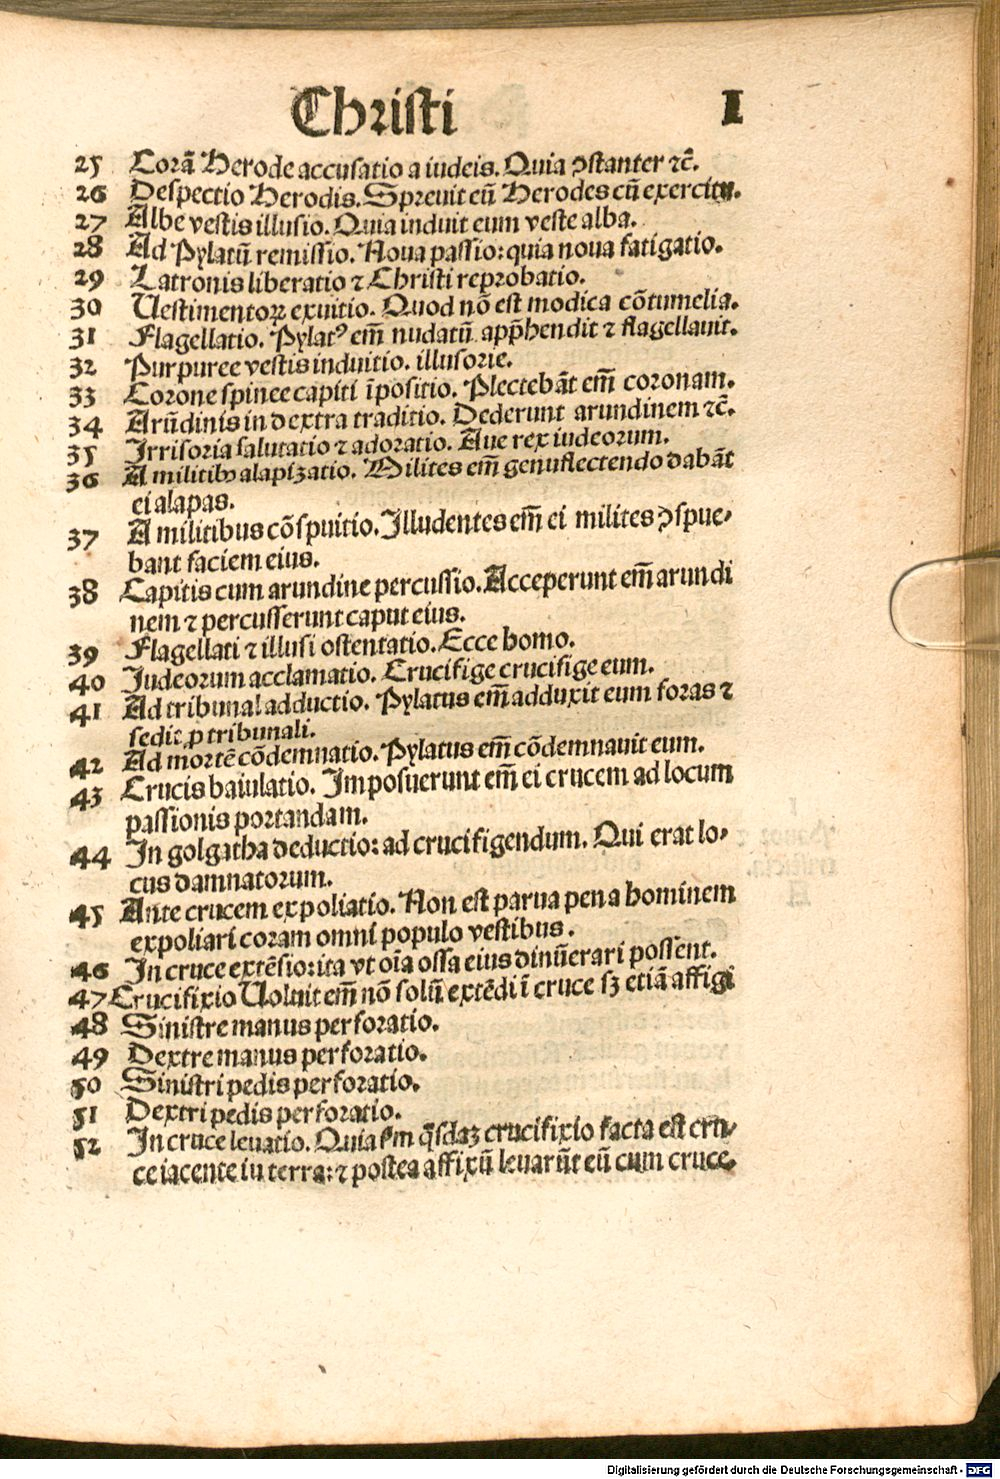 Christi I
25 Corā Herode accusatio a iudeis. Quia ꝯstanter ⁊c̄.
26 Despectio Herodis. Spreuit eū Herodes cū exercitu.
27 Albe vestis illusio. Quia induit eum veste alba.
28 Ad Pylatū remissio. Noua passio: quia noua fatigatio.
29 Latronis liberatio ⁊ Christi reprobatio.
30 Uestimentoꝝ exuitio. Quod nō est modica cōtumelia.
31 Flagellatio. Pylatꝰ em̄ nudatū app̄hendit ⁊ flagellauit.
32 Purpuree vestis induitio. illusorie.
33 Corone spinee capiti īpositio. Plectebāt em̄ coronam.
34 Arūdinis in dextra traditio. Dederunt arundinem ⁊c̄.
35 Irrisoria salutatio ⁊ adoratio. Aue rex iudeorum.
36 A militibꝰ alapizatio. Milites em̄ genuflectendo dabāt
ei alapas.
37 A militibus cōspuitio. Illudentes em̄ ei milites ꝯspue-
bant faciem eius.
38 Capitis cum arundine percussio. Acceperunt em̄ arundi
nem ⁊ percusserunt caput eius.
39 Flagellati ⁊ illusi ostentatio. Ecce homo.
40 Iudeorum acclamatio. Crucifige crucifige eum.
41 Ad tribunal adductio. Pylatus em̄ adduxit eum foras ⁊
sedit ꝓ tribunali.
42 Ad mortē cōdemnatio. Pylatus em̄ cōdemnauit eum.
43 Crucis baiulatio. Imposuerunt em̄ ei crucem ad locum
passionis portandam.
44 In golgatha deductio: ad crucifigendum. Qui erat lo-
cus damnatorum.
45 Ante crucem expoliatio. Non est parua pena hominem
expoliari coram omni populo vestibus.
46 In cruce extēsio: ita vt oīa ossa eius dinūerari possent.
47 Crucifixio Uoluit em̄ nō solū extēdi ī cruce sꝫ etiā affigi
48 Sinistre manus perforatio.
49 Dextre manus perforatio.
50 Sinistri pedis perforatio.
51 Dextri pedis perforatio.
52 In cruce leuatio. Quia ẜm q̄sdaꝫ crucifixio facta est cru-
ce iacente in terra: ⁊ postea affixū leuarūt eū cum cruce.
Digitalisierung gefördert durch die Deutsche Forschungsgemeinschaft - DFG